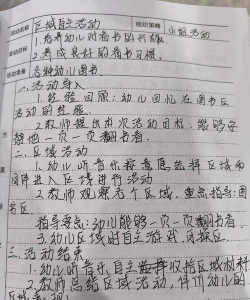 活动名称 区域自主活动 组织策略 小组活动
活动目标 1.培养幼儿对看书的兴趣
2.养成良好的看书习惯.
活动准备 各种幼儿图书
一.活动导入
1.经验回顾:幼儿回忆在图书区
活动的经验.
2.教师提出本次活动目标:能够安
静地一页一页翻书看.
二.区域活动
1.幼儿听音乐按意愿选择区域和
同伴进入区域进行活动
2.教师观察各个区域,重点指导:图
书区.
指导要点:幼儿能够一页一页翻书看.
3.幼儿区域时自主游戏,可换区.
三.活动结束
1.幼儿听音乐,自主收拾区域材料
2.教师总结区域活动,评价幼儿的